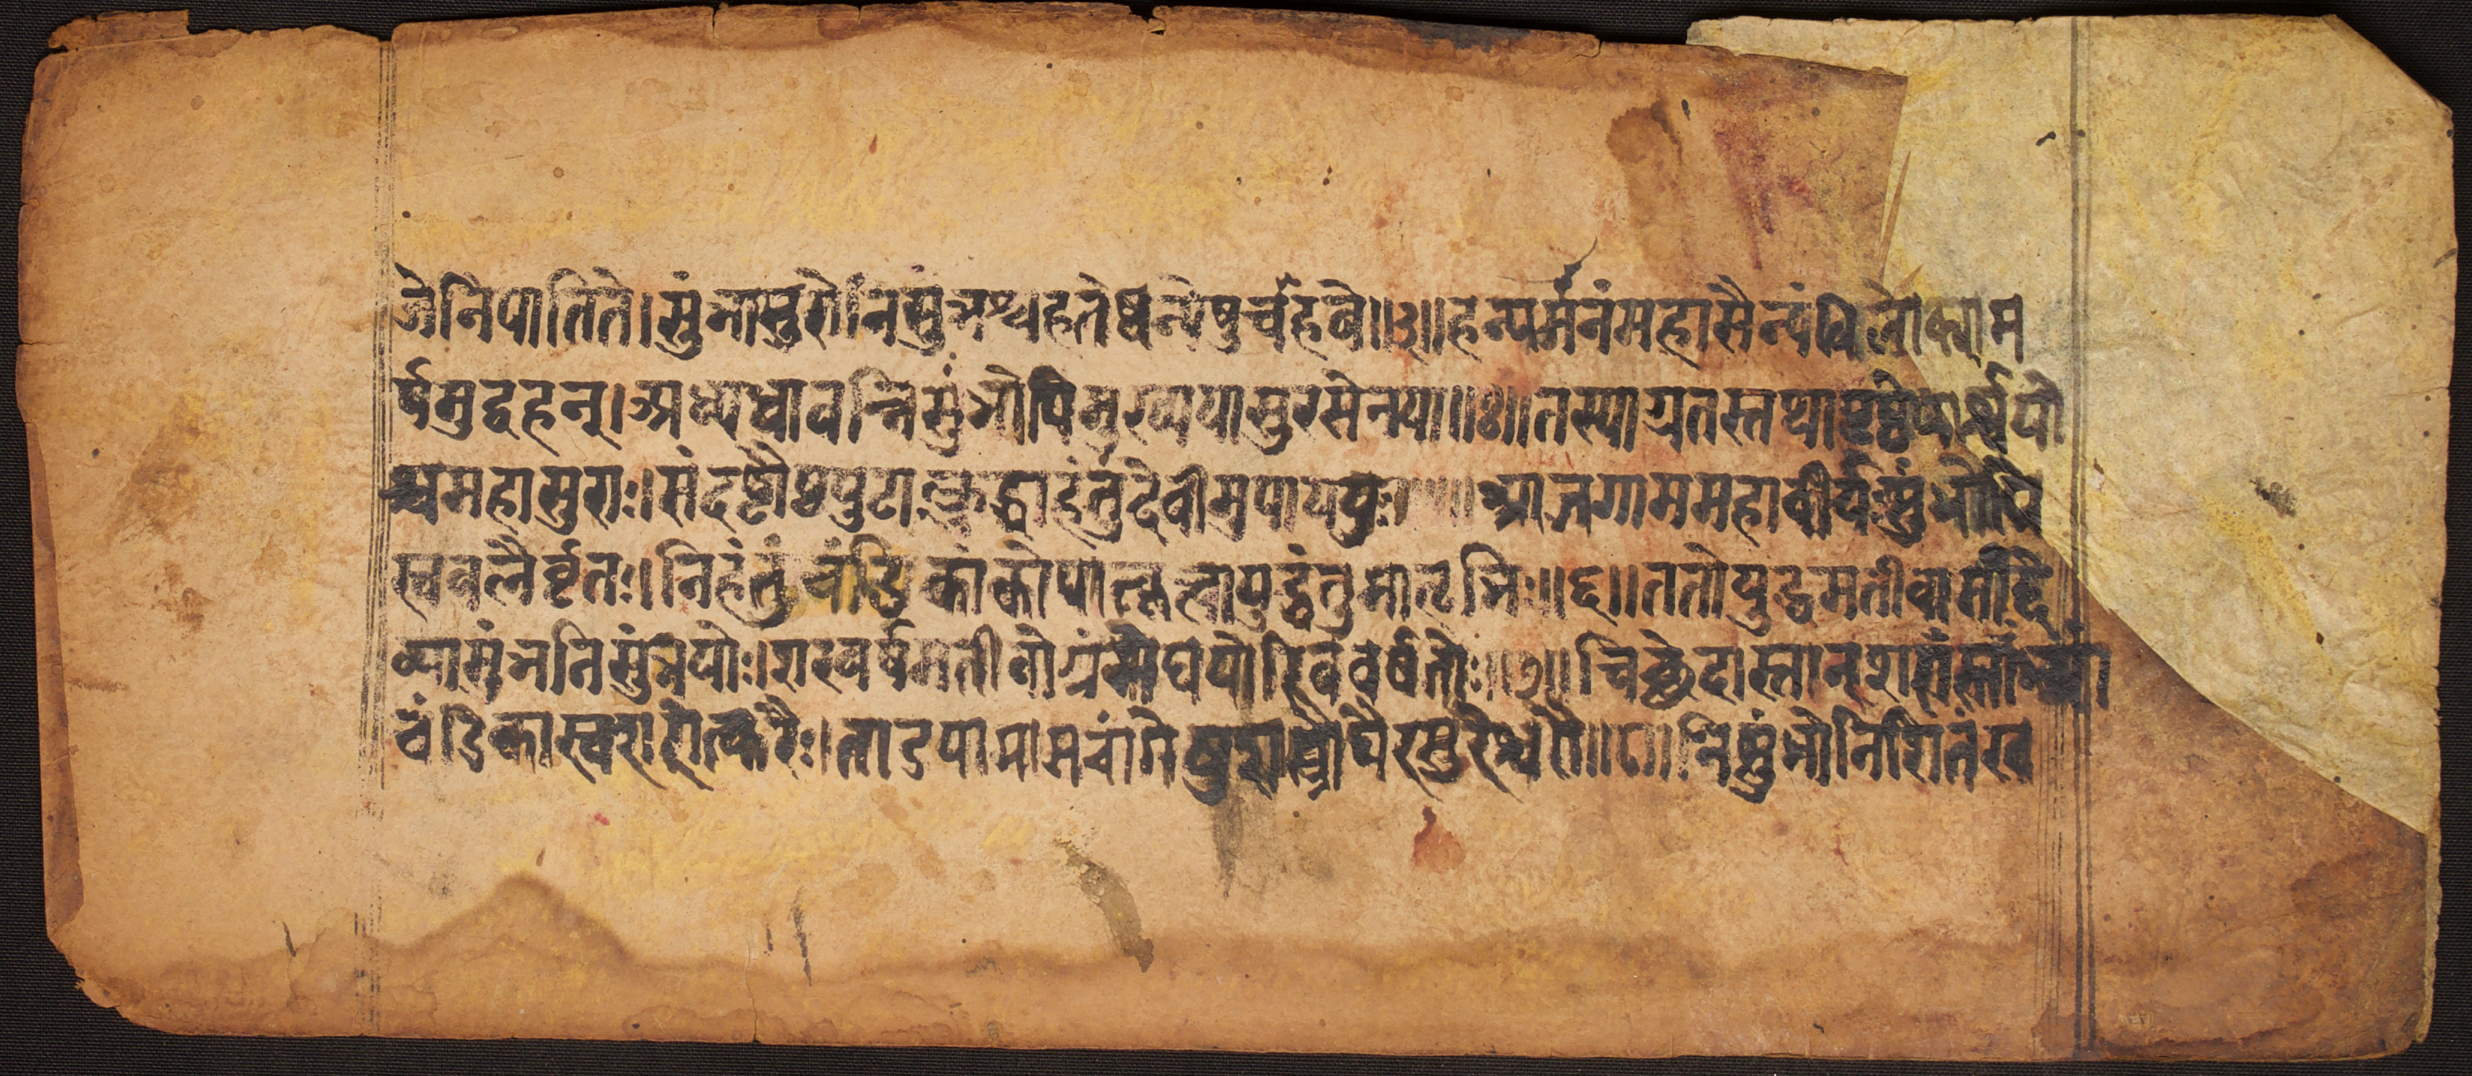 जेनिपातिते।सुंभासुरोनिसुंभश्चहतेष्वन्येषुचहवे॥३॥हन्यर्मनंमहासैन्यंविलोक्याम
र्षमुद्वहन्।अभ्यधावन्निसुंभोपिमुख्ययासुरसेनया॥४॥तस्याग्रतस्तथापृष्ठेपार्श्वयो
श्चमहासुराः।संदष्टौष्ठपुटाःक्रुद्धाहंतुंदेवीमुपाययुः॥ ॥आजगाममहावीर्यःसुंभोपि
स्वबलैर्वृतः।निहंतुंचंडिकांकोपात्कृत्वायुद्धंतुमातृभिः॥६॥ततोयुद्धमतीवासीद्दे
व्यासुंभनिसुंभयोः।शरवर्षमतीवोग्रंमेघयोरिववर्षतोः॥७॥चिच्छेदास्तान्शरांस्ताभ्यां
चंडिकास्वशरोत्करैः।ताडयामासचांगेषुशस्त्रौघैरसुरेश्वरौ॥८॥निसुंभोनिशितंख